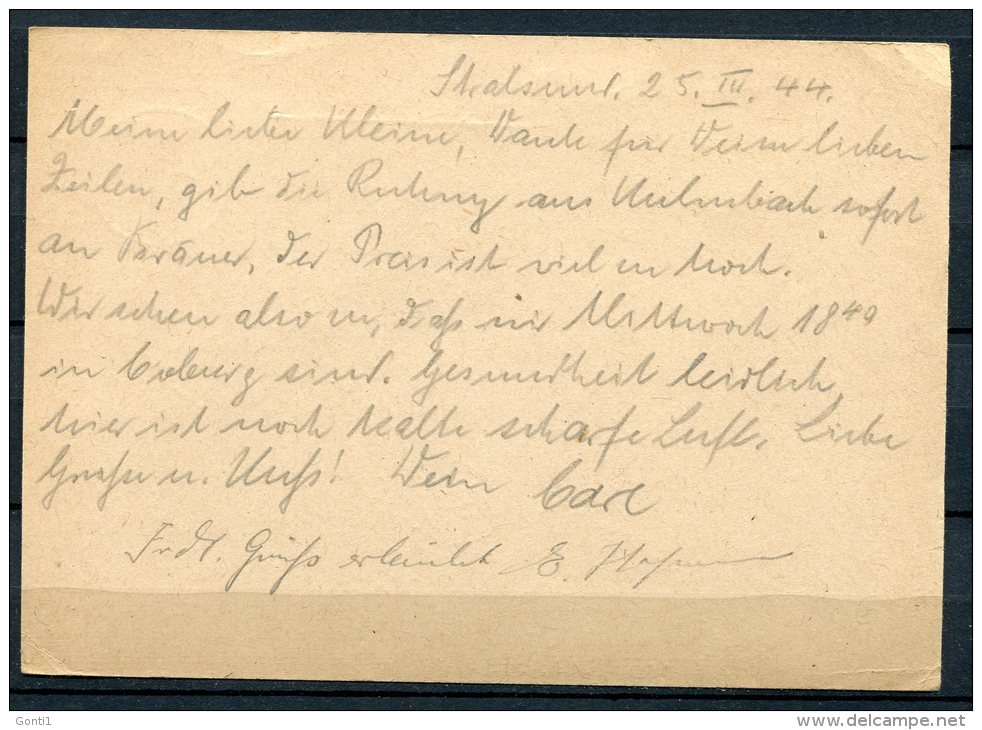 Stralsund. 25. III. 44.
Meine liebe Kleine, Danke für Deine lieben
Zeilen, gib die Rechnung aus Kulmbach sofort
an der Preis ist viel zu hoch.
Wir sehen also zu, daß wir Mittwoch 18⁴⁰
in Coburg sind. Gesundheit leidlich,
hier ist noch kalte scharfe Luft. Liebe
Grüße u. Kuß! Dein Carl
Frdl. Gruß erlaubt E.
Gonti1
www.delcampe.net